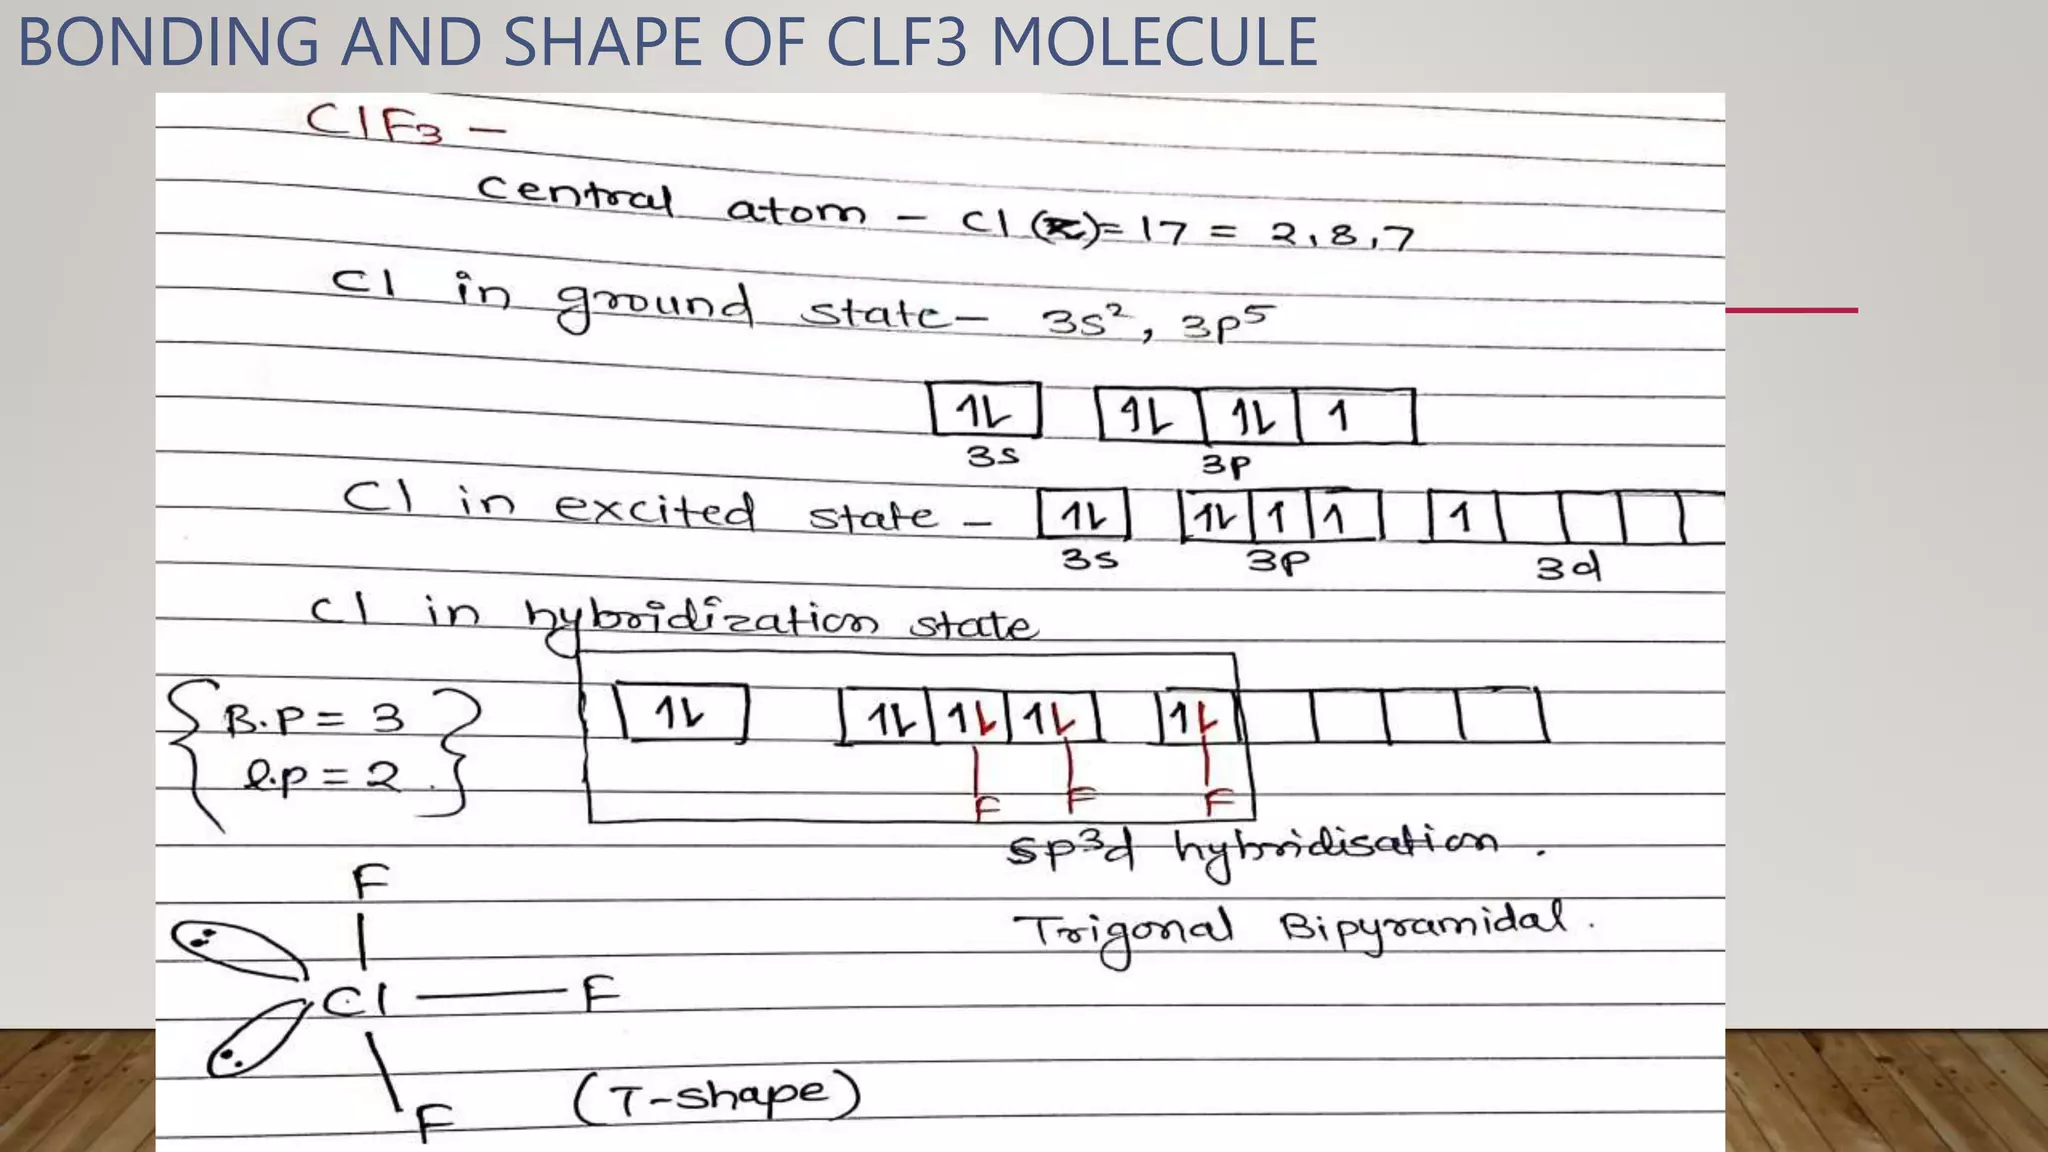 BONDING AND SHAPE OF CLF3 MOLECULE
ClF3 -
Central atom - Cl (Z)= 17 = 2,8,7
Cl in ground state - 3s², 3p⁵
1L 1L 1L 1
3s 3p
Cl in excited state - 1L 1L 1 1 1
3s 3p 3d
Cl in hybridization state
B.P = 3 1L 1L 1L 1L 1L
l.p = 2 F F F
sp3d hybridisation.
F
Trigonal Bipyramidal.
Cl F
F (T-shape)